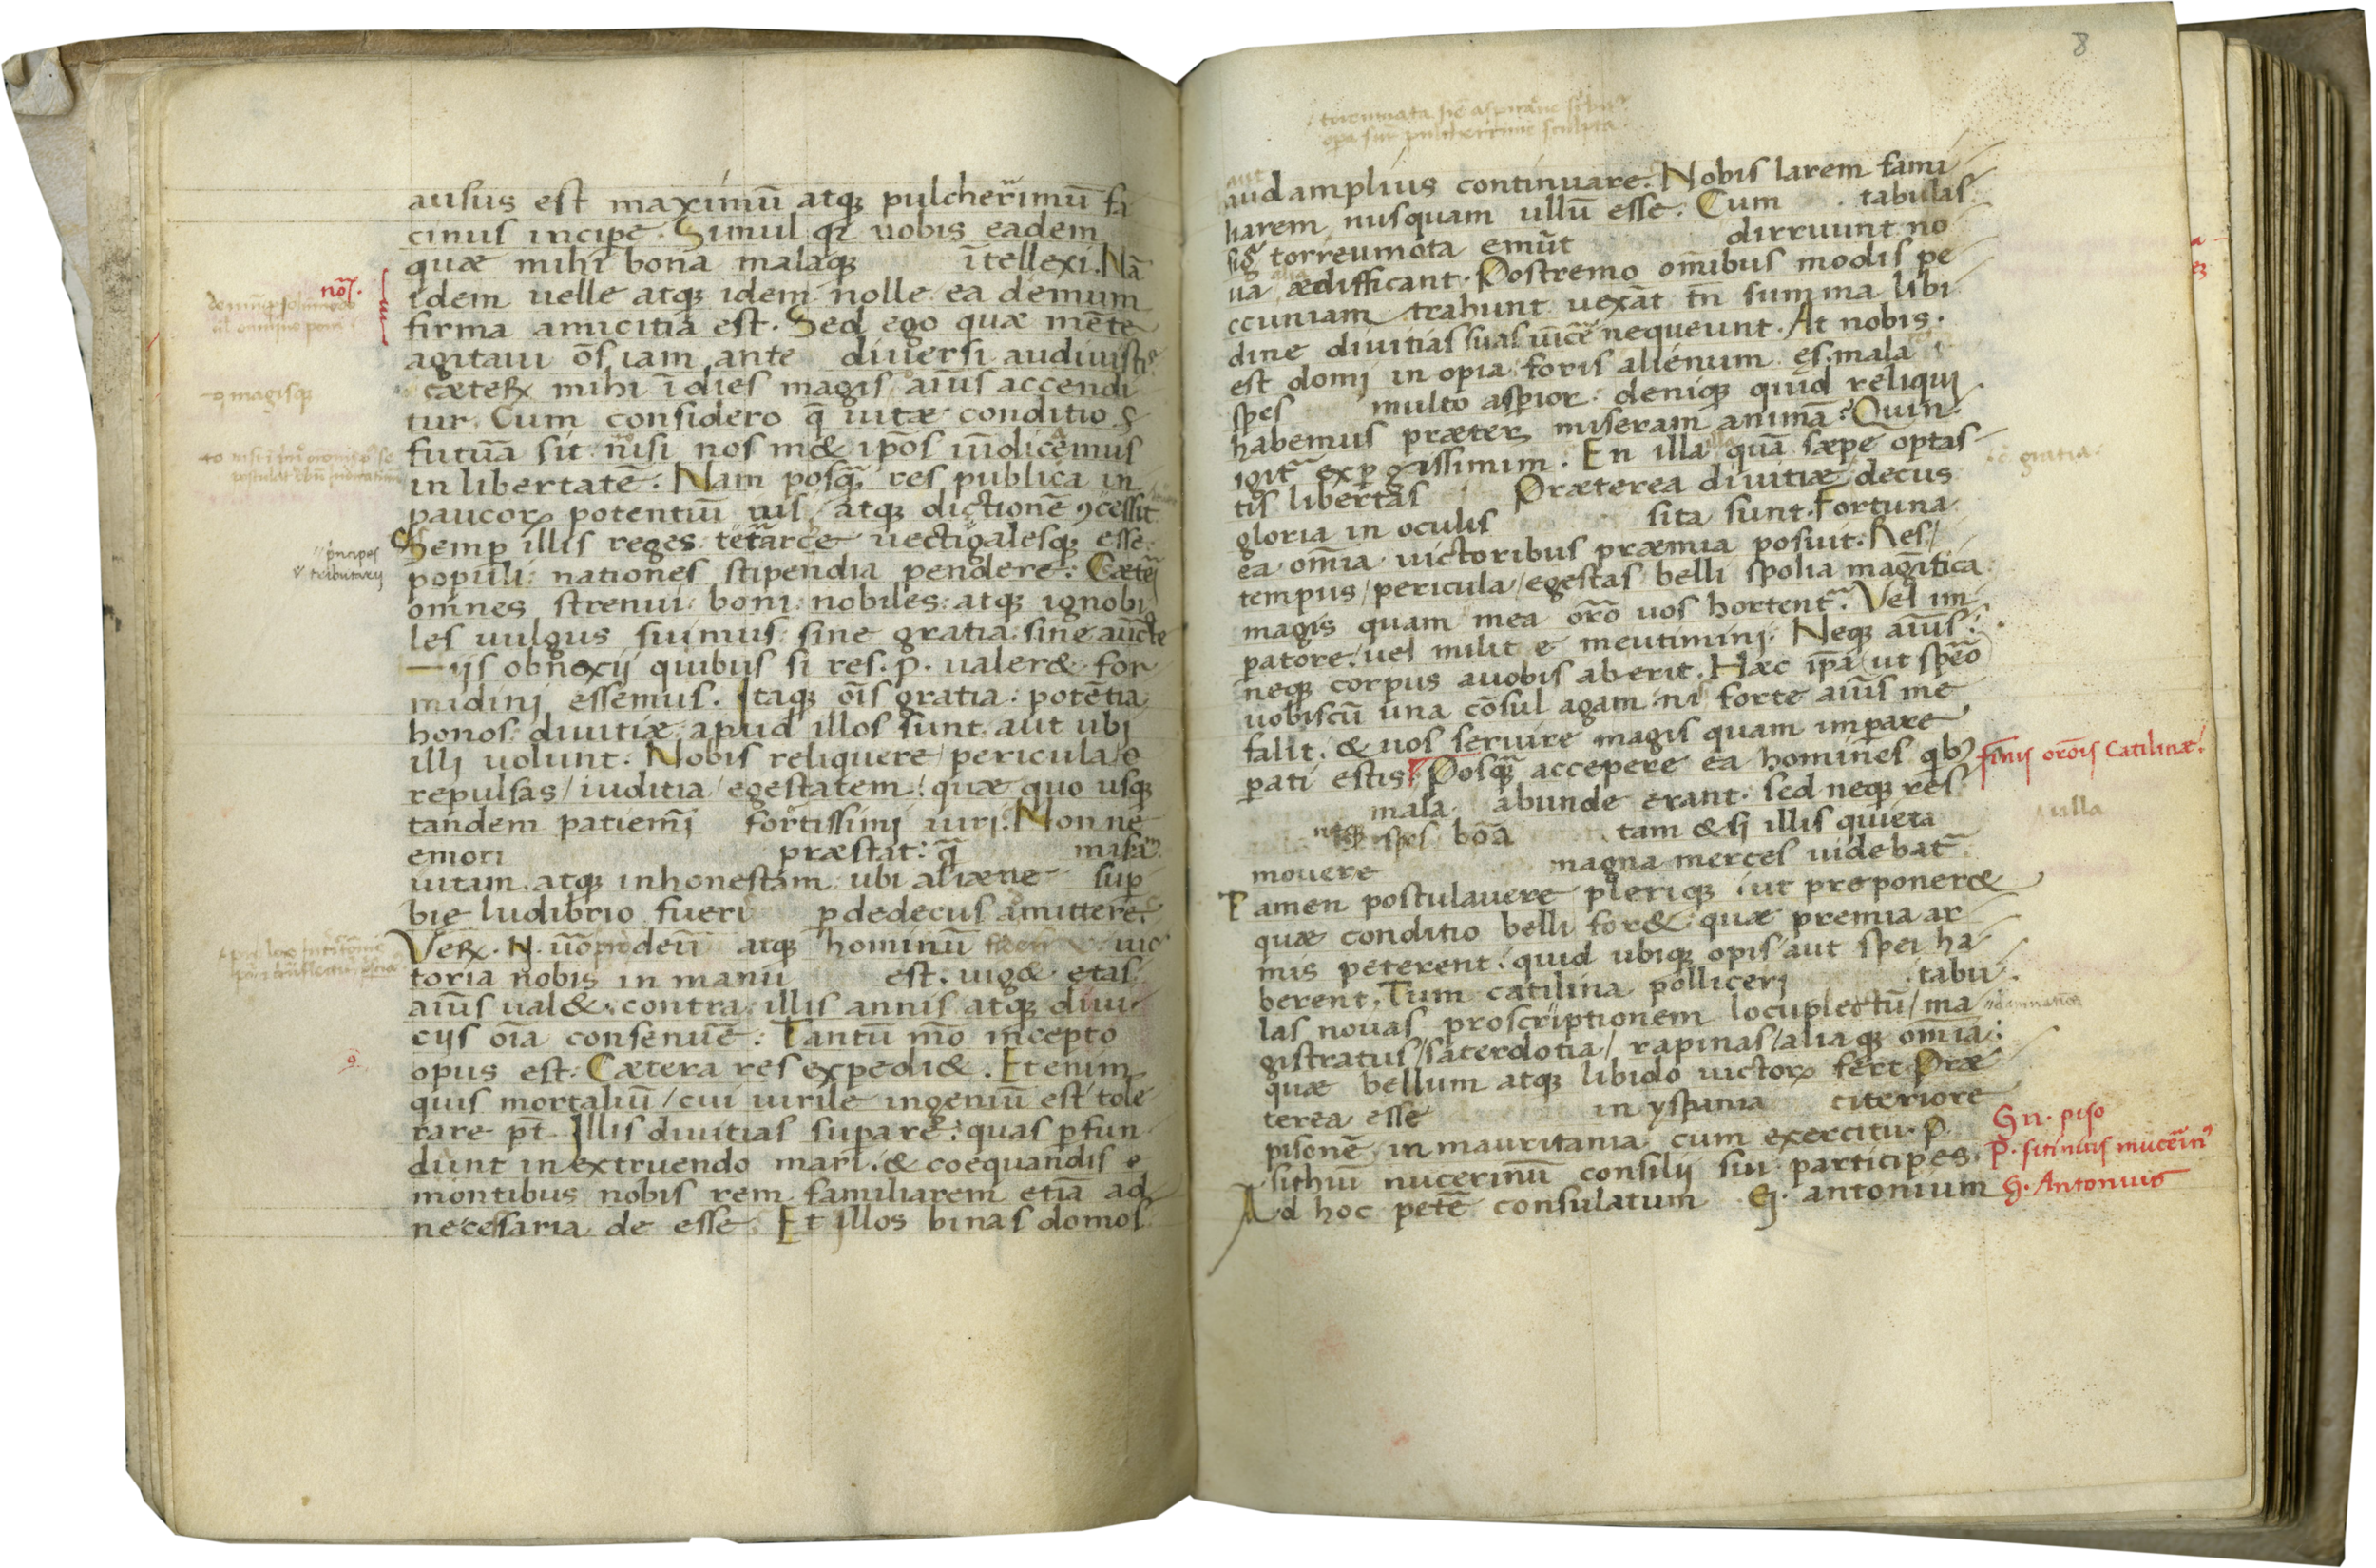 ausus est maximū atqꝫ pulcherrimū fa
cinus incipe. Simul qꝛ uobis eadem
quæ mihi bona malaqꝫ ītellexi. Nā
idem uelle atqꝫ idem nolle ea demum
firma amicitia est. Sed ego quæ mēte
agitaui ōs iam ante diuersi audiuistis
cæteꝝ mihi ī dies magis aīus accendi
tur. Cum considero q̄ uitæ conditio
futūa sit nisi nos m& ipōs
in libertatē. Nam posq̄ res publica in
paucoꝝ potentiū ius atqꝫ dictionē ꝯcessit
Semp illis reges tetrarce uectigalesqꝫ esse
populi: nationes stipendia pendere: Cæteri
omnes strenui: boni: nobiles: atqꝫ ignobi
les uulgus fuimus: sine gratia: sine aucte
ijs obnoxij quibus si res. p. ualer& for
midini essemus. Itaqꝫ oīs gratia: potētia
honos: diuitiæ: apud illos sunt aut ubi
illi uolunt: Nobis reliquere/ pericula/
repulsas/ iuditia/ egestatem: quæ quo usqꝫ
tandem patiemī fortissimi uiri. Nonne
emori præstat: q̄
uitam. atqꝫ inhonestam ubi alienæ sup
bie ludibrio fueri p dedecus amittere.
Veꝝ. deū atqꝫ hominū uic
toria nobis in manu est. uig& etas
aīus ual&: contra illis annis atqꝫ diui
cijs oīa consenuē: Tantū mō incepto
opus est: Cætera res expedi&. Etenim
quis mortaliū/ cui uirile ingeniū est tole
rare pt̄ Illis diuitias supare: quas pfun
dunt in extruendo mari. & coequandis
montibus nobis rem familiarem etiā ad
necessaria de esse. Et illos binas domos
nō.
-q magisqꝫ
principes
tributarij
8
aud amplius continuare. Nobis larem fami
liarem nusquam ullū esse. Cum tabulas
sig̃ torreumota emūt dirruunt no
ua ædifficant. Postremo omībus modis pe
ccuniam trahunt uexāt tn̄ summa libi
dine diuitias suas uīcē nequeunt. At nobis.
est domi in opia foris alienum ęs. mala
spes multo aspior: deniqꝫ quid reliqui
habemus præter miseram animā? Quin.
igit̃ expgissimim. En illa quā sæpe optas
tis libertas Præterea diuitiæ decus
gloria in oculis sita sunt. Fortuna
ea omīa uictoribus præmia posuit. Res/
tempus/ pericula/ egestas belli spolia magītica
magis quam mea orō uos hortent̃. Vel im
patore: uel milit e meutimini. Neqꝫ aīus:
neqꝫ corpus auobis aberit. Hæc ipa ut speō
uobiscū una cōsul agam ni forte aīus me
falit. & uos seruire magis quam impare
pati estis Posq̄ accepere ea homines
mala abunde erant. sed neqꝫ res
neqꝫ spes bōa tam &si illis quieta
mouere magna merces uidebat̃
Tamen postulauere pleriqꝫ ut proponer&
quæ conditio belli for& quæ premia ar
mis peterent. quid ubiqꝫ opis/ aut spei ha
berent. Tum catilina polliceri tabu
las nouas proscriptionem locuplectū/ ma
gistratus/ sacerdotia/ rapinas/ alia qꝫ omīa:
quæ bellum atqꝫ libido uictoꝝ fert. Præ
terea esse in yspania citeriore
pisonē in mauritania cum exercitu. p.
sithiū nucerinū consilij sui participes.
Ad hoc petē consulatum G. antonium
gratia.
finis orōis Catilinæ.
ulla
Gn. piso
G. Antonius